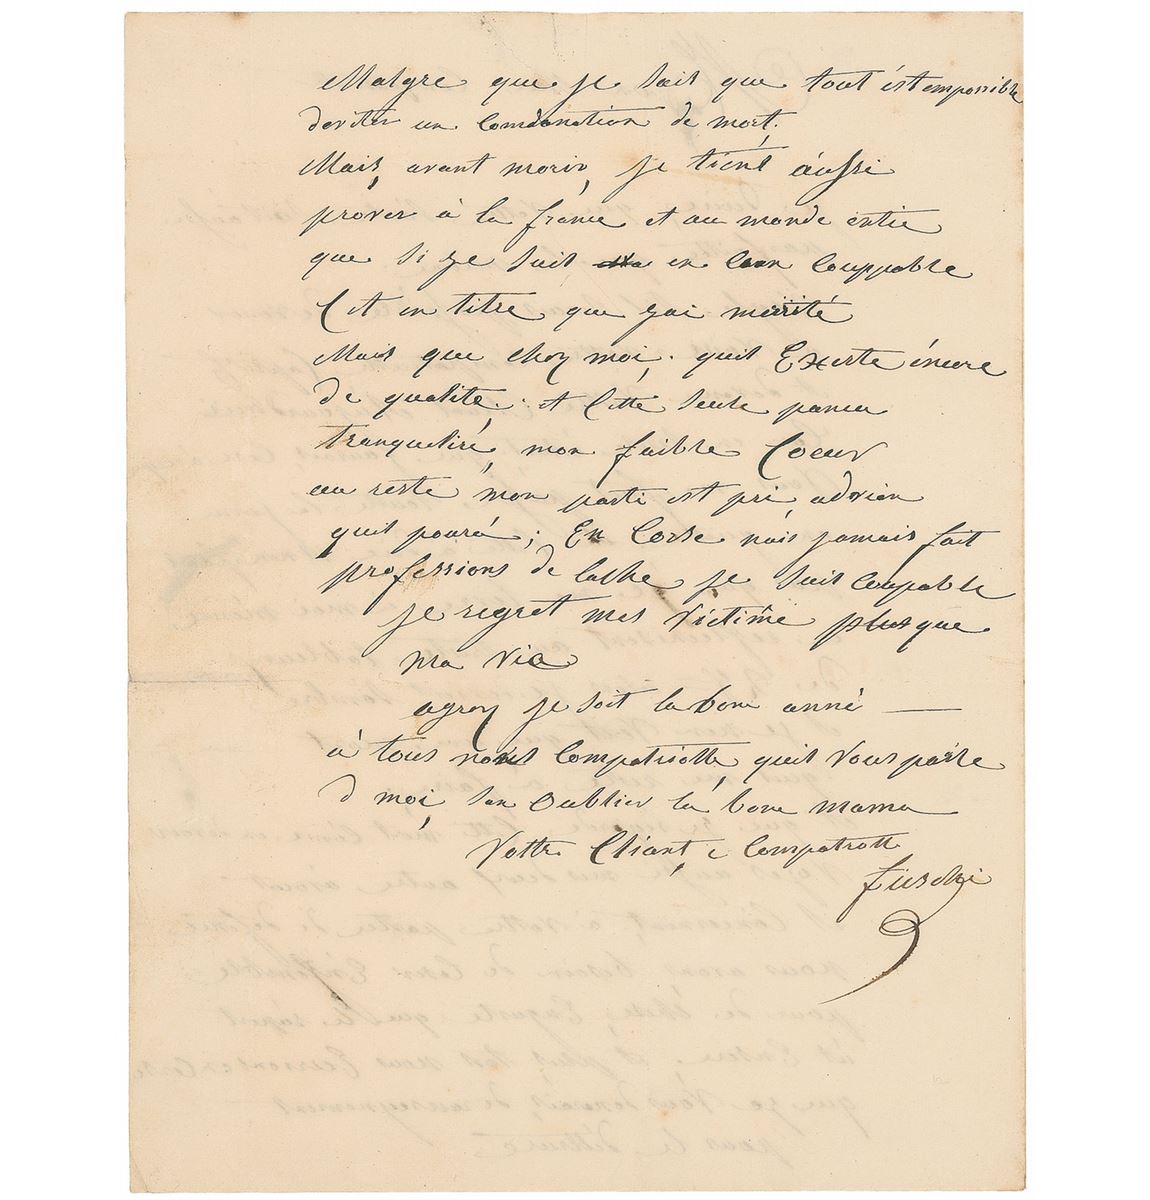 Malgre que je sait que tout ést empossible
deviter un Condanation de mort,
Mais, avant morir, je tient aússi
prover à la france et au monde entie
que si ge suit en Coupable
C et un titre que gai merité
Mais que chez moi, quil Exerte éncore
de qualite, et Cétte seule pancu
tranquelire, mon faible Coeur
au reste mon parti est pri, advien
quil pourá; En Corse nais jamais fait
professions de lache, je suit Coupable
je regret mes Victime plus que
ma vie
agrez je soit la bone anné —
à tous nous Compatriotte, quil Vous parle
d moi, san oublier la bone mama
Vottre Cliant, e Compatriott
fieschi